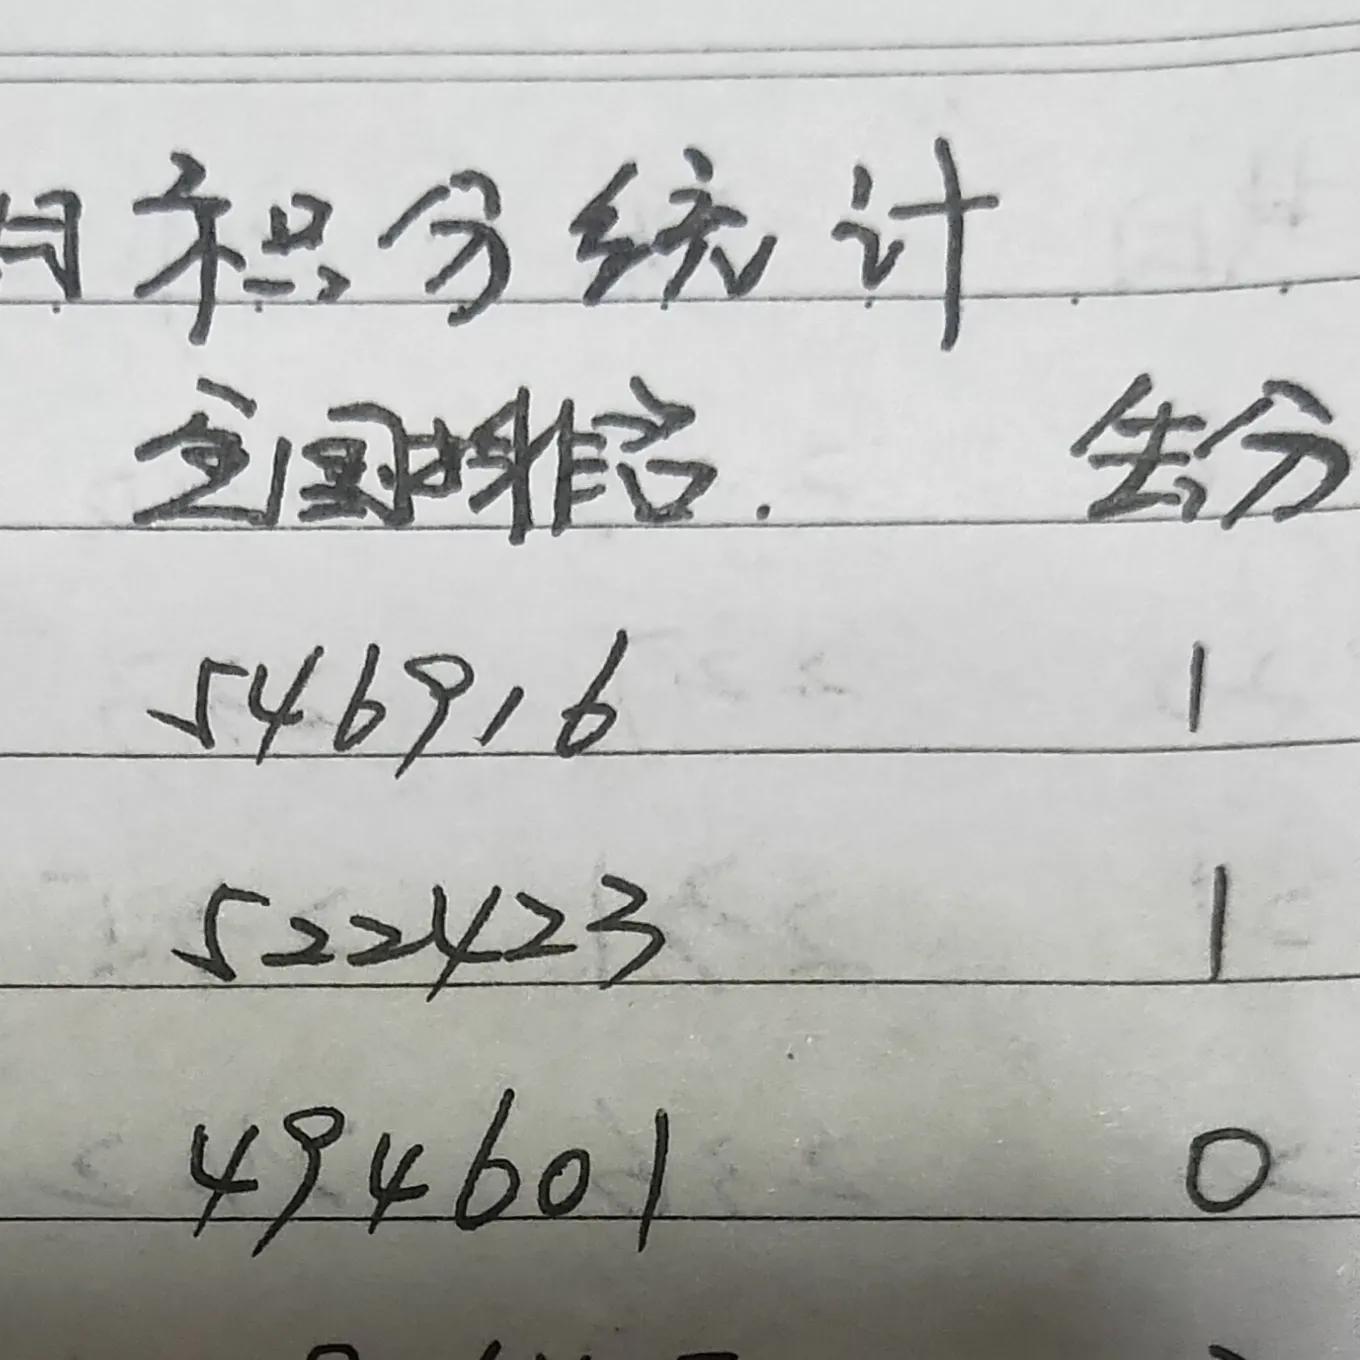 月积分统计
全国排名. 失分
546916 1
522423 1
494601 0